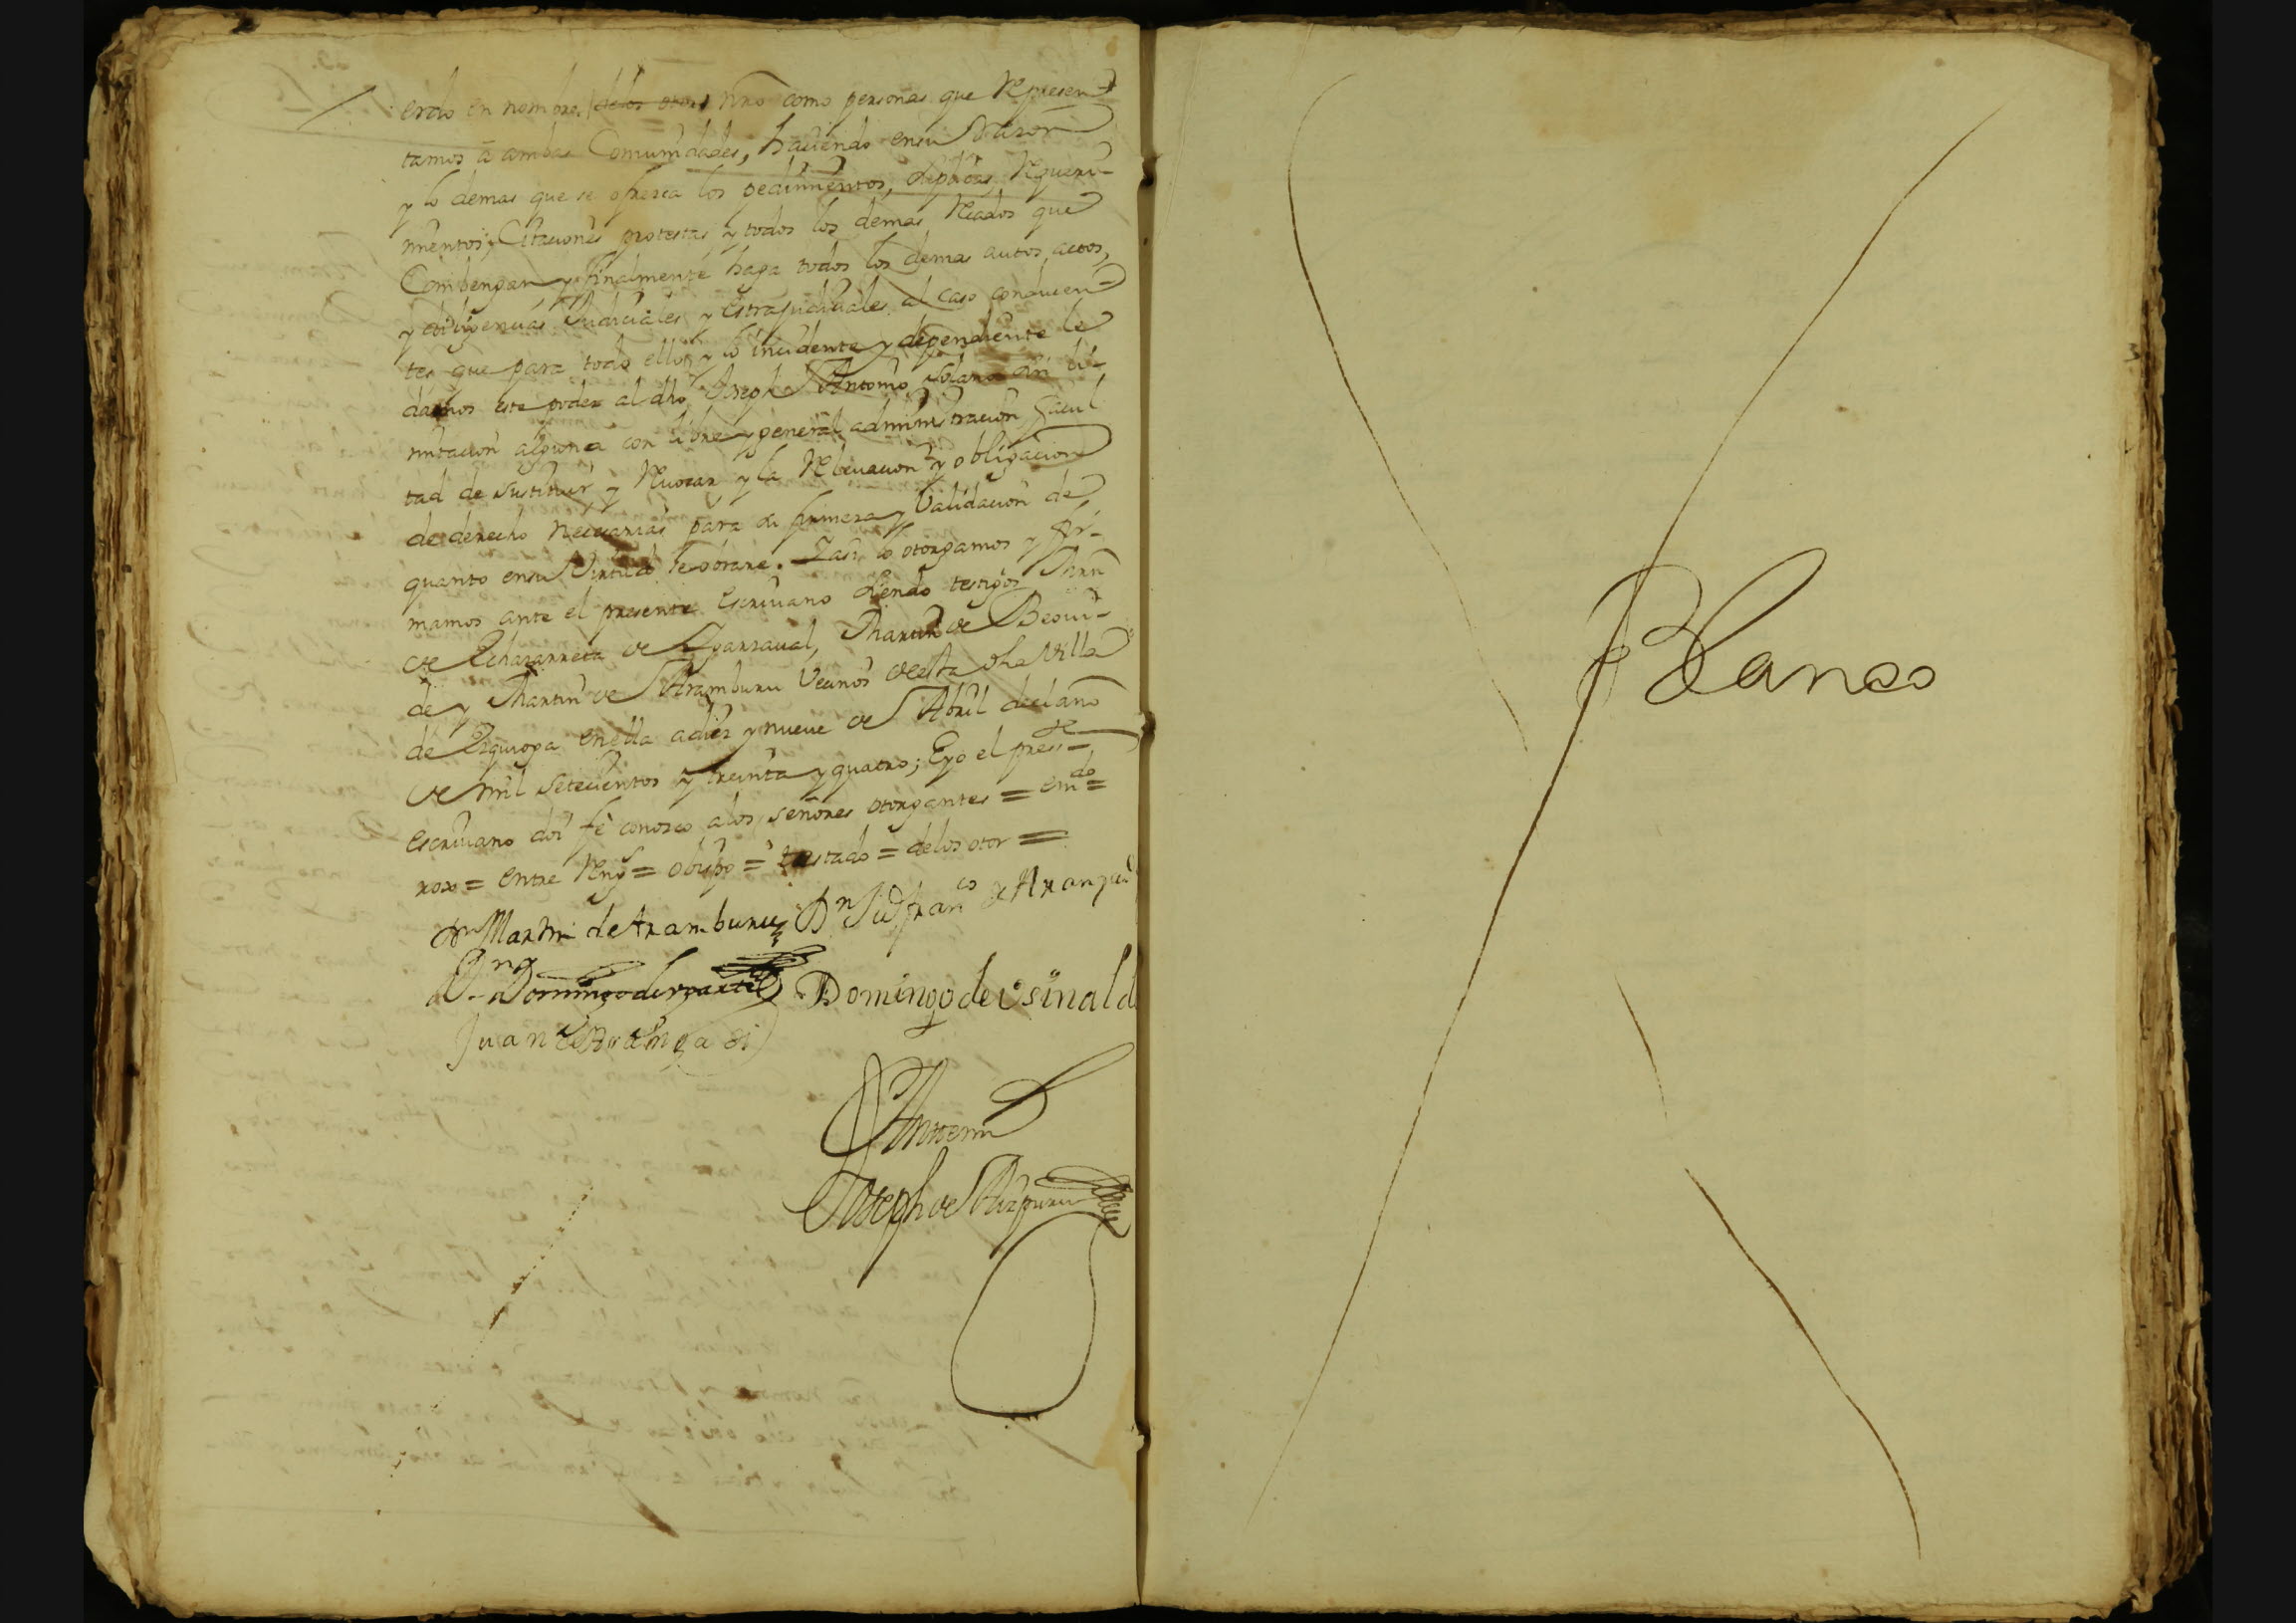 erdo en nombre delos otor nro como personas que represen-
tamos à ambas Comunidades, haciendo en su razon
y lo demas que se ofresca los pedimientos, suplicas, requeri-
mientos, Citaciones protestas y todos los demas recados que
Combengan y finalmente haga todos los demas autos, actos,
y diligencias Judiciales y estrajudiciales al caso conducen-
tes que para todo ello y lo incidente y dependiente le
damos este poder al dho Joseph Antonio Solano sin li-
mitacion alguna con libre y general administracion facul
tad de sustituir y revocar y la relevacion y obligacion
de derecho necesarias para su firmeza y validacion de
quanto en su virtud se obrare. Y asi lo otorgamos y fir-
mamos ante el presente escrivano siendo testigos
de Echazarreta de Martin de Beovi-
de y Martin de Aramburu vecinos de esta dha Villa
de Ezquioga en ella a diez y nueve de Abril del año
de mil setecientos y treinta y quatro; E yo el press.te
escrivano doi fe conosco a los señores otorgantes = em.do =
roso = entre reng.s = obispo = testado = delos otor =
Dn Martin de Aramburu Dn Ju° fran.co de Arangur
Dn Domingo de Domingo de Usinald
Juan de Aramga
Ante mi
Joseph de Aizpuru
Blanco